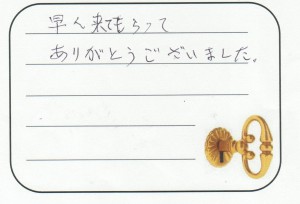 早く来てもらって
ありがとうございました。